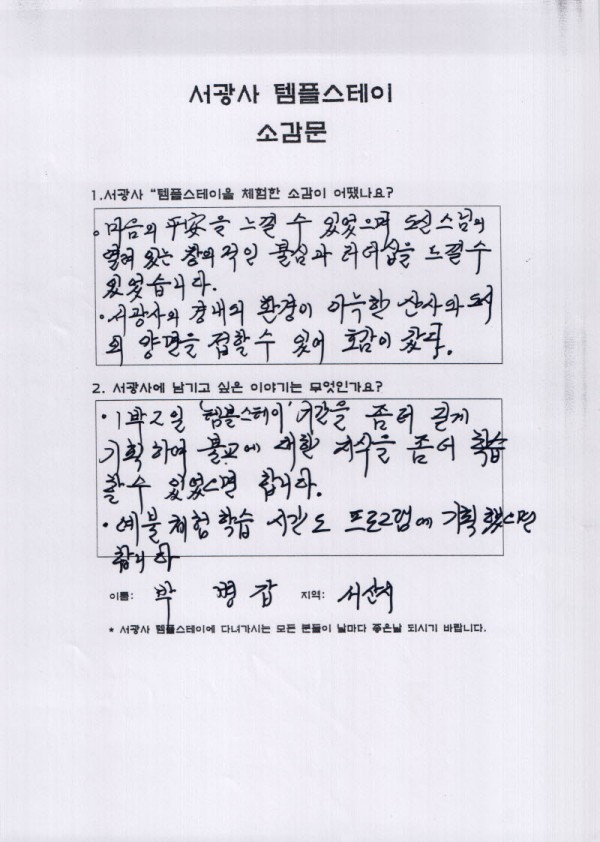 서광사 템플스테이
소감문
1.서광사 "템플스테이을 체험한 소감이 어땠나요?
·마음의 平安을 느낄 수 있었으며 도신스님의
열려 있는 창의적인 불심과 리더십을 느낄 수
있었습니다.
·서광사의 경내의 환경이 아늑한 산사와 도시
의 양면을 접할 수 있어 호감이 갔다.
2. 서광사에 남기고 싶은 이야기는 무엇인가요?
·1박2일 '템플스테이' 기간을 좀 더 길게
기획하여 불교에 대한 지식을 좀 더 학습
할 수 있었으면 합니다.
·예불체험학습 시간도 프로그램에 기획했으면
합니다
이름: 박 병 갑 지역: 서산시
* 서광사 템플스테이에 다녀가시는 모든 분들이 날마다 좋은날 되시기 바랍니다.